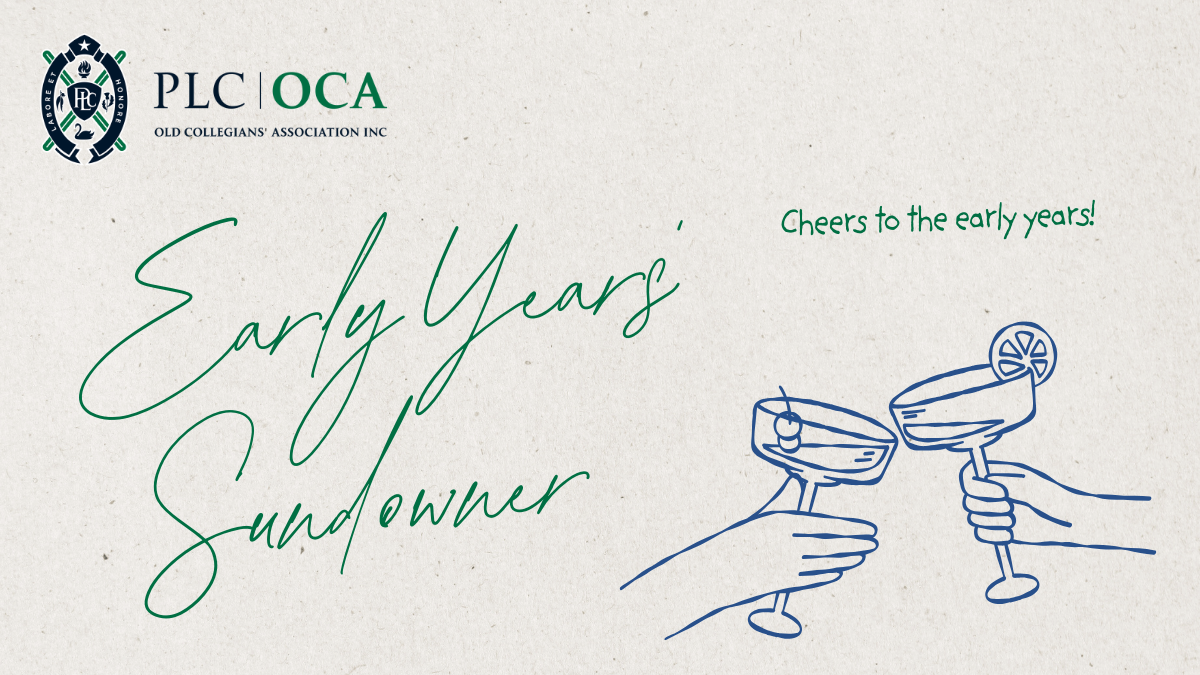 LABORE ET HONORE
PLC
PLC | OCA
OLD COLLEGIANS' ASSOCIATION INC
Cheers to the early years!
Early Years'
Sundowner